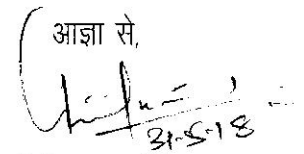 आज्ञा से,
31-5-18